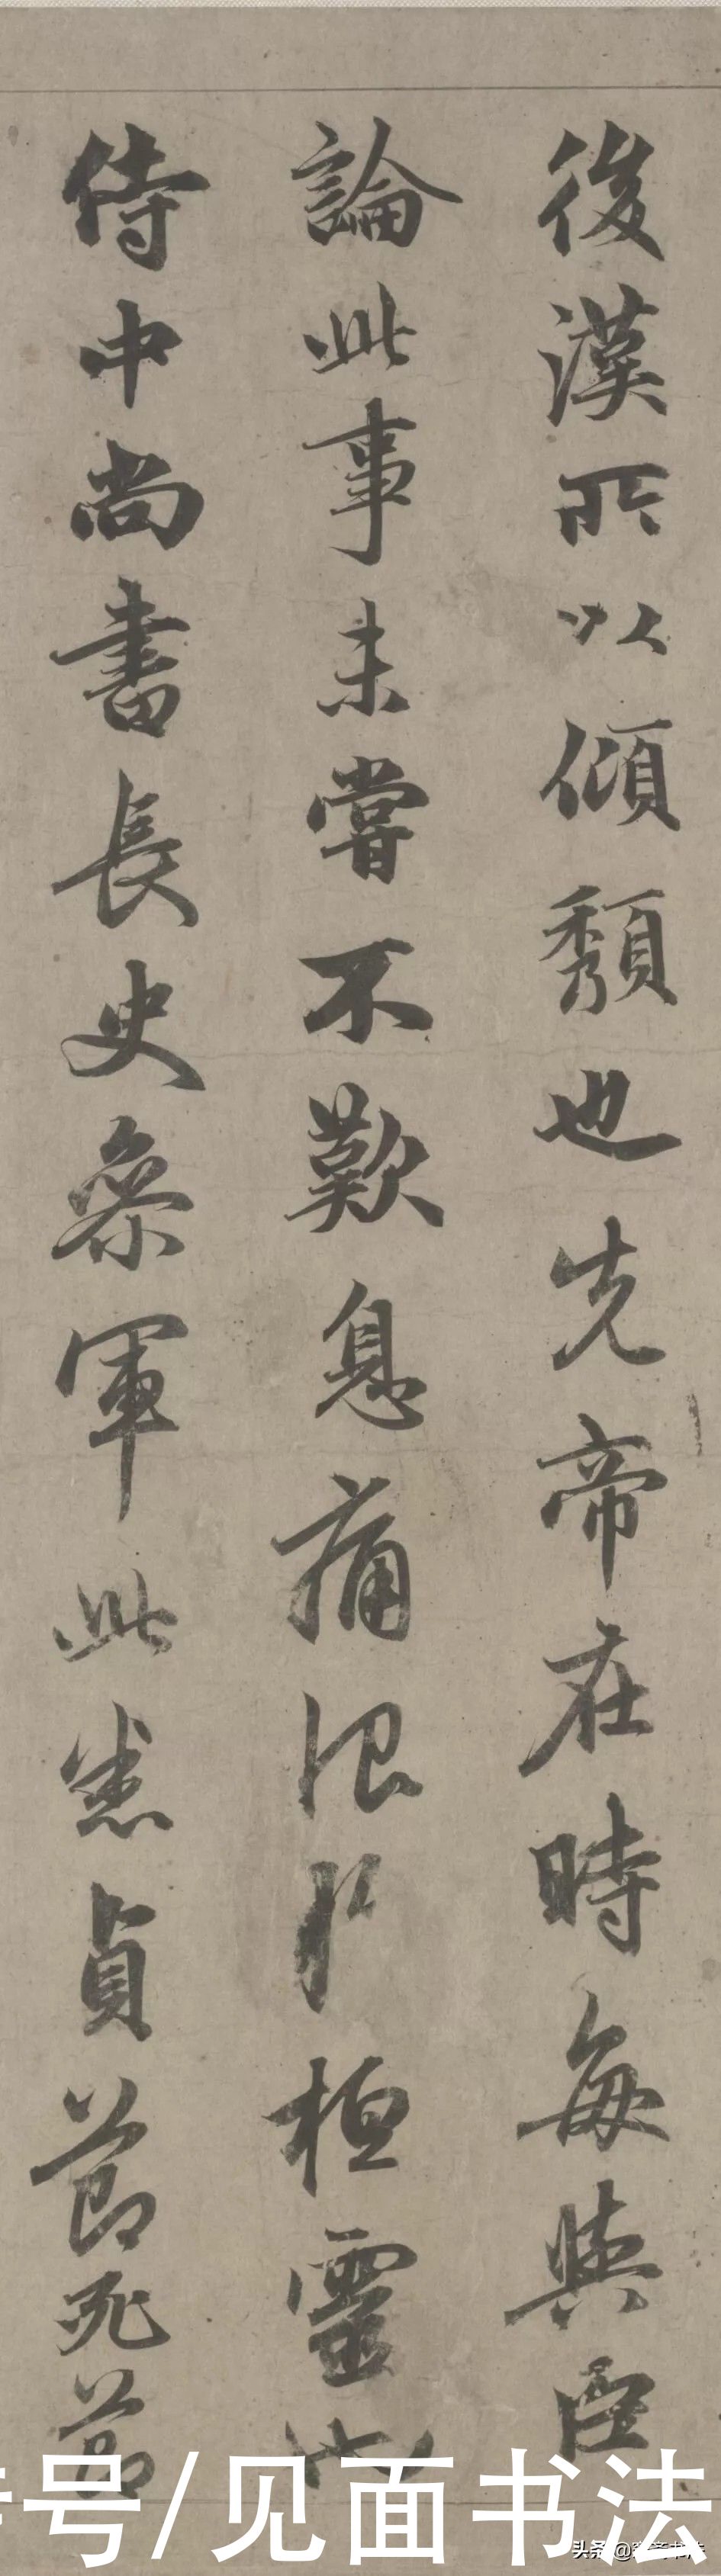 後漢所以傾頹也先帝在時每與臣
論此事未嘗不歎息痛恨於桓靈也
侍中尚書長史參軍此悉貞節死節
号/见面书法
头条@